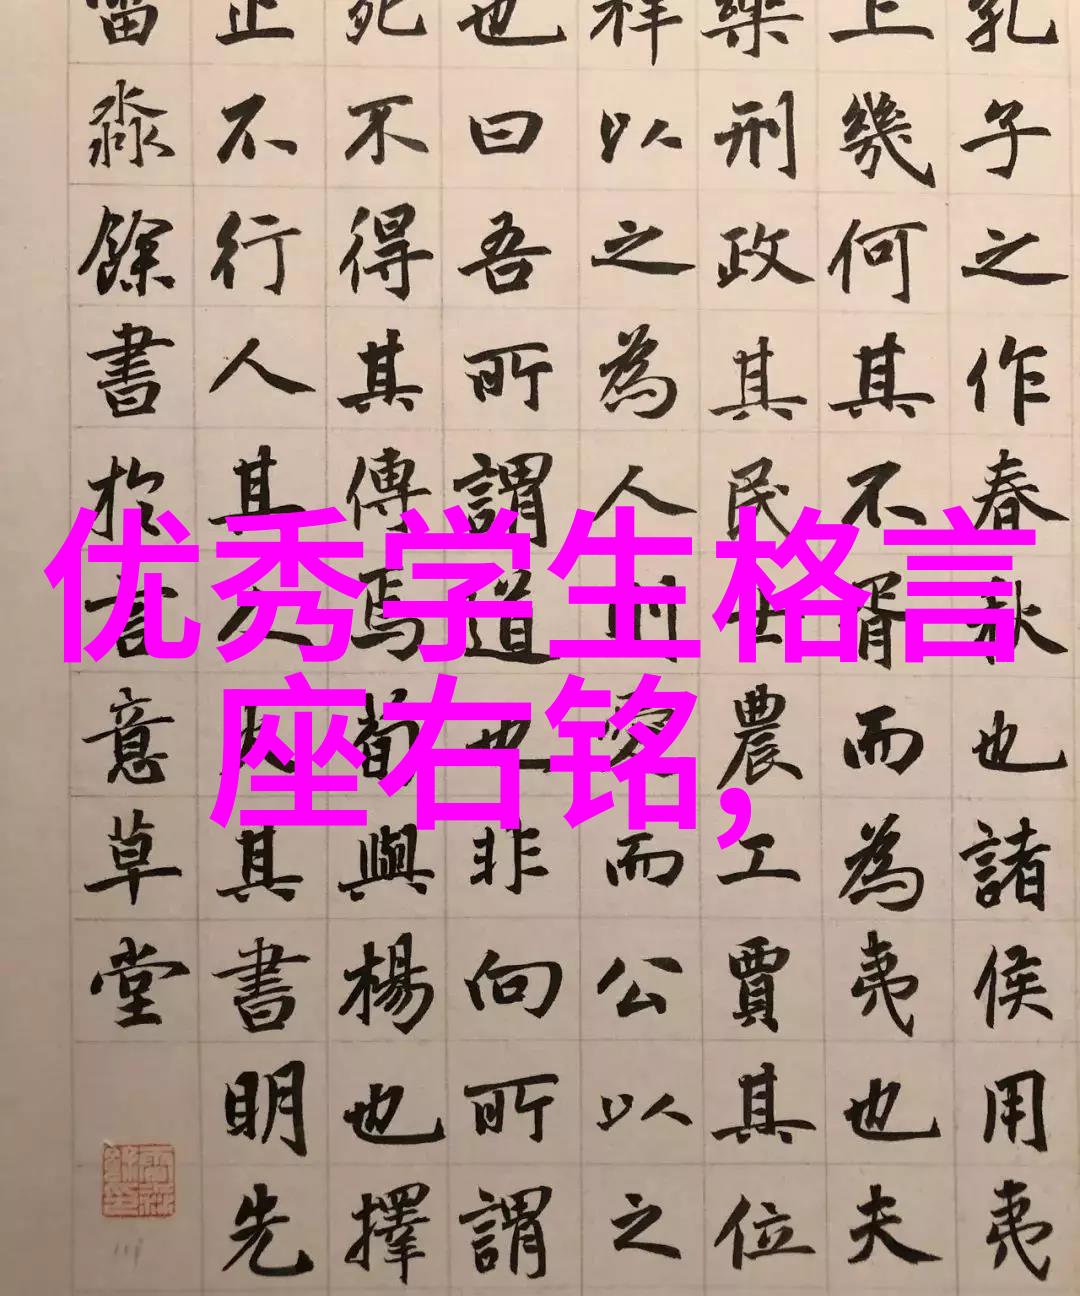 优秀学生格言
座右铭,
孔子之作春秋也諸侯用夷
上幾何其不胥而為夷也夫
樂刑政其民士農工賈其位
祥以之為人則愛而公以之
也曰吾所謂道也非向所謂
死不得其傳焉荀與楊也擇
止不行人其人火其書明先
淼餘書於意草堂